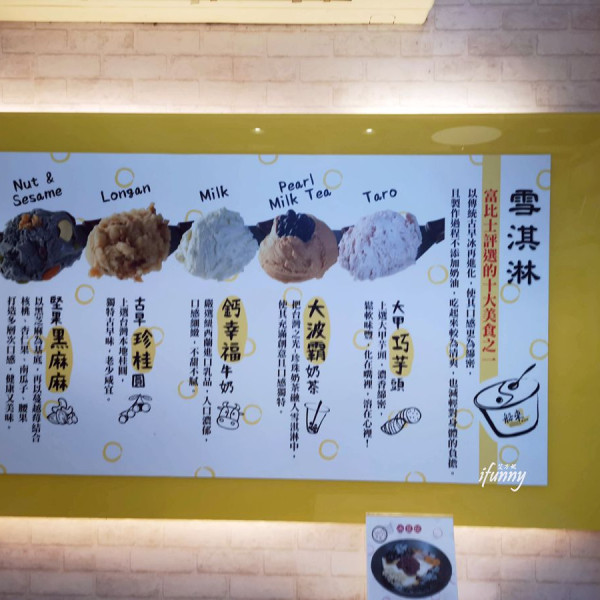 雪淇淋
富比士評選的十大美食之一
以傳統古早冰再進化，使其口感更為綿密，
且製作過程不添加奶油，吃起來較為清爽，也減輕對身體的負擔。
Taro
大甲巧芋頭
上選大甲芋頭，濃香綿密，
鬆軟味豐，化在嘴裡，溶在心裡！
Pearl
Milk Tea
大波霸奶茶
把台灣之光，珍珠奶茶融入雪淇淋中，
使其充滿創意且口感獨特。
Milk
鈣幸福牛奶
嚴選紐西蘭進口乳源，入口濃郁，
口感細緻，不甜不膩。
Longan
古早珍桂圓
上選台灣本地桂圓，
獨特古早味，老少咸宜。
Nut &
Sesame
堅果黑麻麻
以黑芝麻為基底，再以蔓越莓結合
核桃、杏仁果、南瓜子、腰果
打造多層次口感，健康又美味。
ifunny